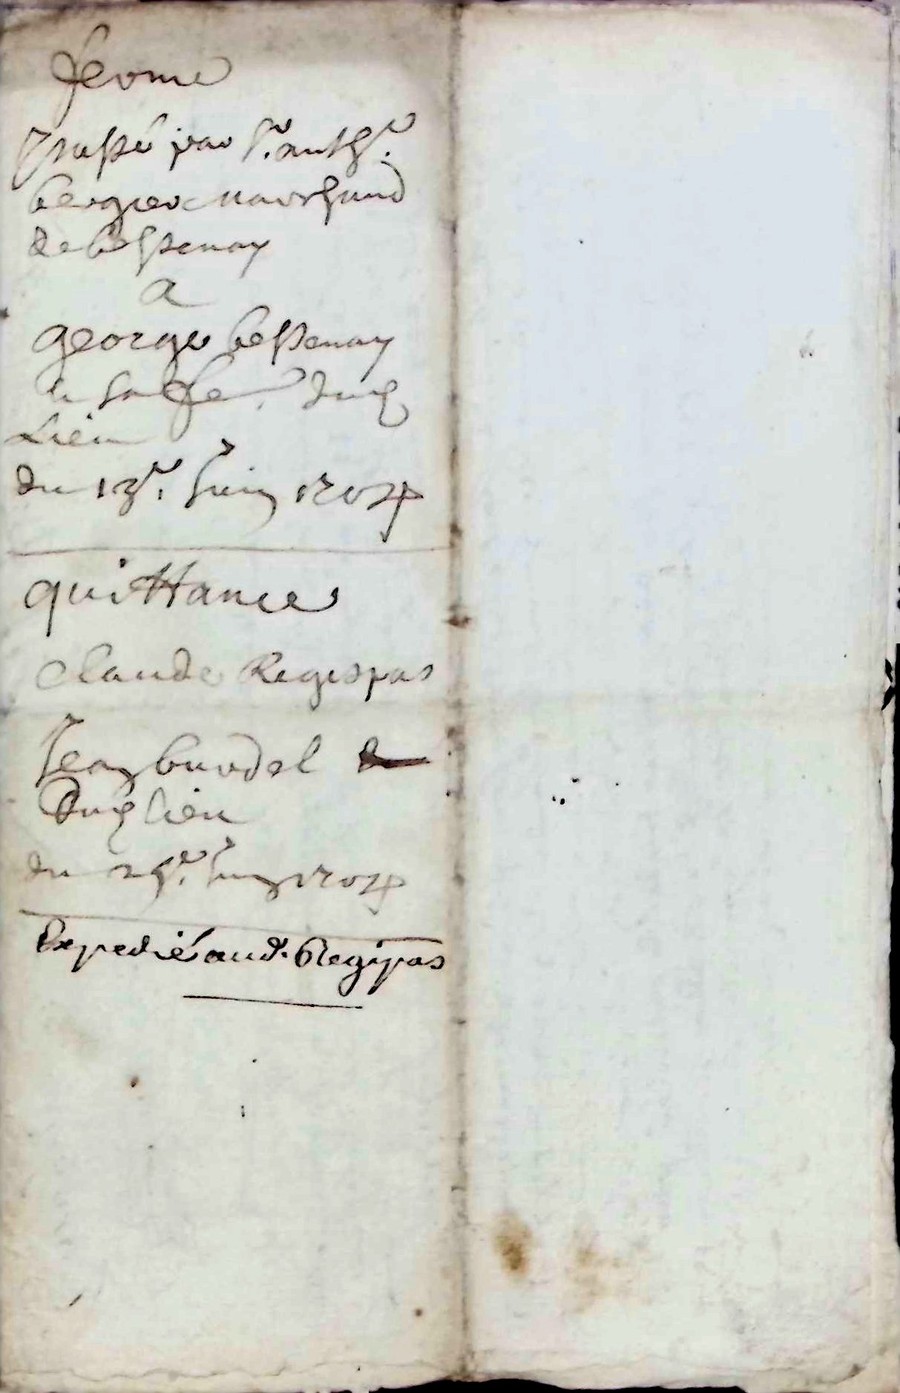 ferme
passé par Sr. anthe.
bergier marchand
de bessenay
a
george bessenay
& sa fe. dud
Lieu
du 13e. Juin 1704
quittance
Claude Regispas
Jean burdel
dud lieu
du 25e. Juin 1704
Expedié aud. Regipas